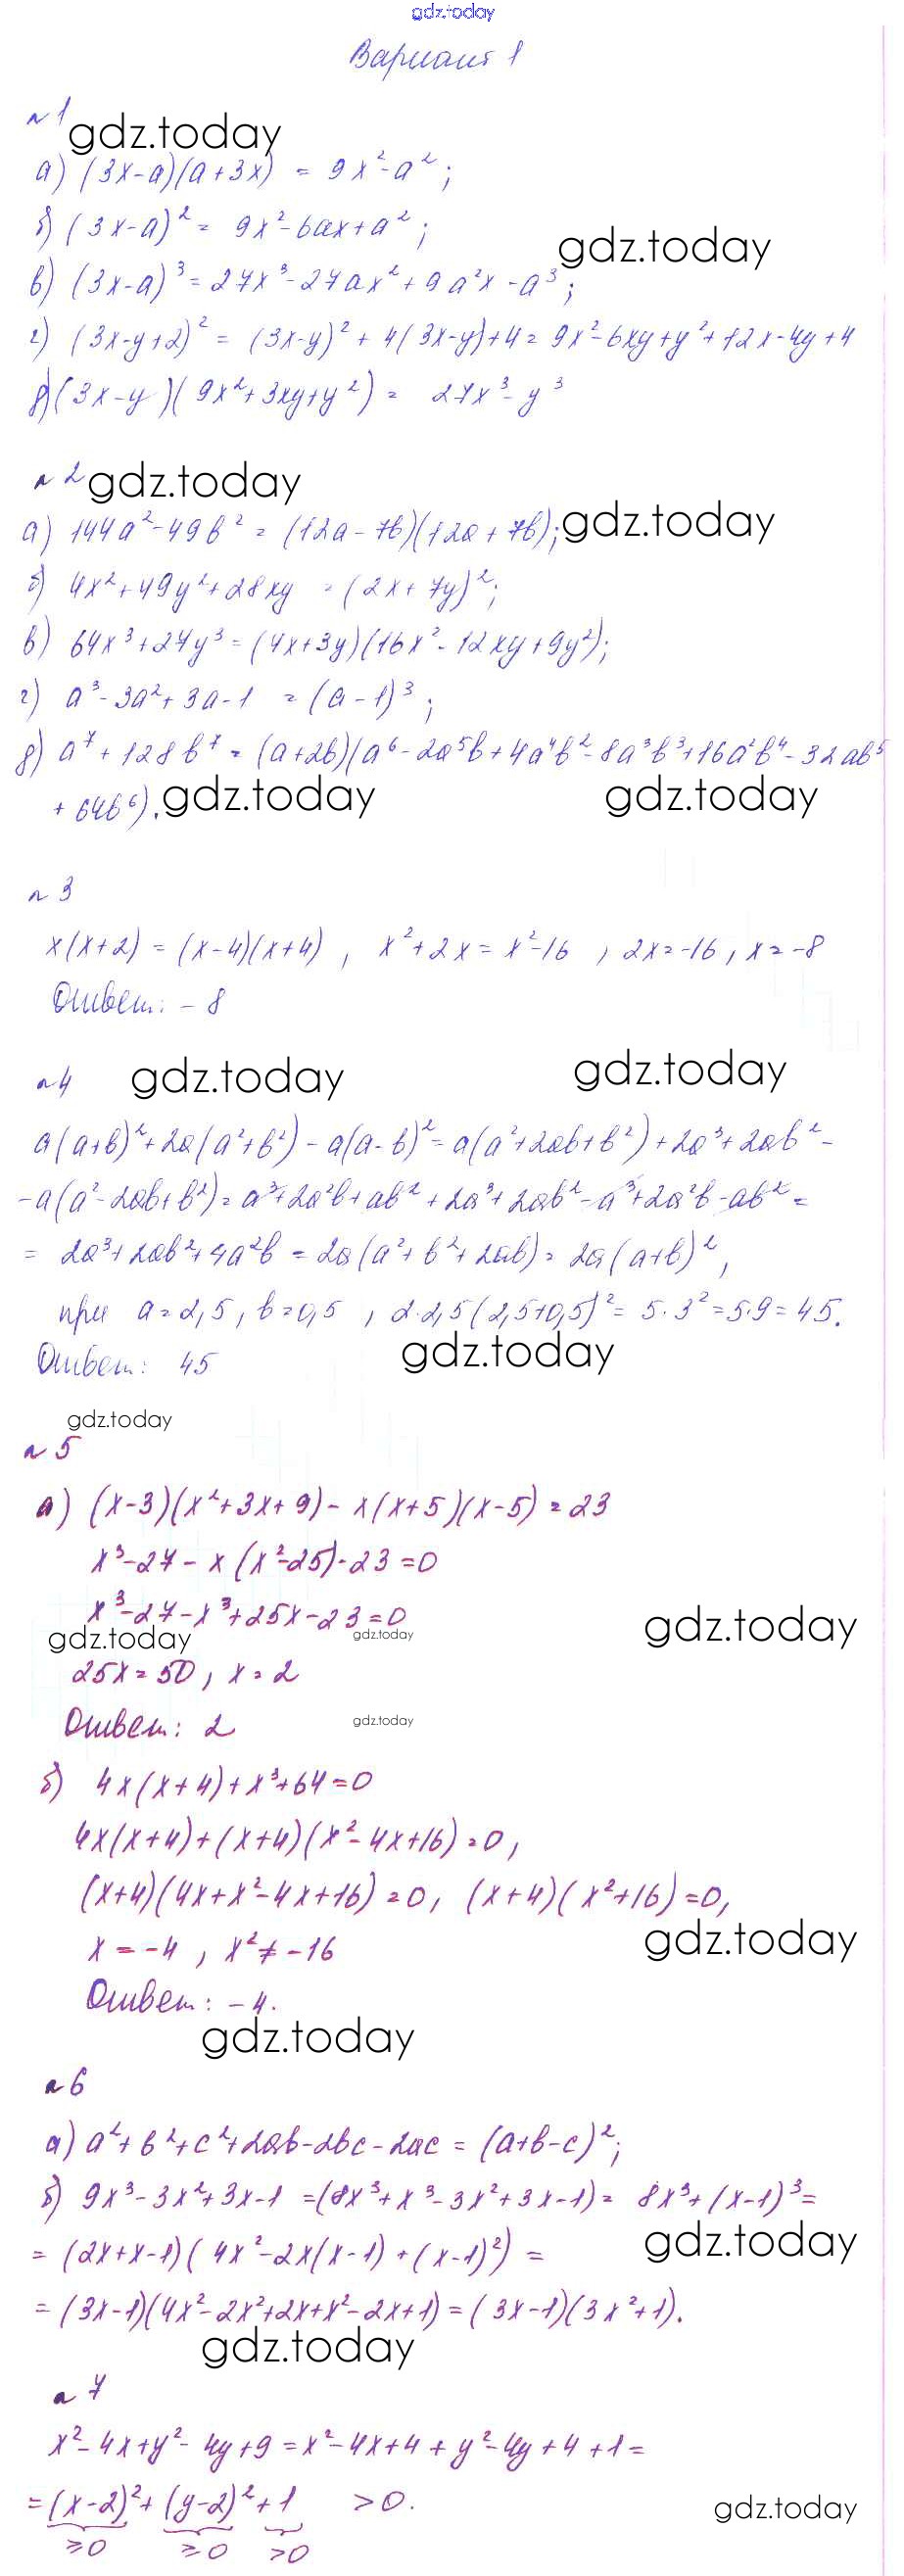 gdz.today
Вариант 1
№1
gdz.today
а) (3x-a)(a+3x) = 9x²-a²;
б) (3x-a)² = 9x²-6ax+a²;
gdz.today
в) (3x-a)³ = 27x³-27ax²+9a²x-a³;
г) (3x-y+2)² = (3x-y)²+4(3x-y)+4 = 9x²-6xy+y²+12x-4y+4
д) (3x-y)(9x²+3xy+y²) = 27x³-y³
№2
gdz.today
а) 144a²-49b² = (12a-7b)(12a+7b);
gdz.today
б) 4x²+49y²+28xy = (2x+7y)²;
в) 64x³+27y³ = (4x+3y)(16x²-12xy+9y²);
г) a³-3a²+3a-1 = (a-1)³;
д) a⁷+128b⁷ = (a+2b)(a⁶-2a⁵b+4a⁴b²-8a³b³+16a²b⁴-32ab⁵
+64b⁶).
gdz.today gdz.today
№3
x(x+2) = (x-4)(x+4), x²+2x = x²-16, 2x = -16, x = -8
Ответ: -8
№4
gdz.today gdz.today
a(a+b)²+2a(a²+b²)-a(a-b)² = a(a²+2ab+b²)+2a³+2ab²-
-a(a²-2ab+b²) = a³+2a²b+ab²+2a³+2ab²-a³+2a²b-ab² =
= 2a³+2ab²+4a²b = 2a(a²+b²+2ab) = 2a(a+b)²,
при a=2,5, b=0,5, 2·2,5(2,5+0,5)² = 5·3² = 5·9 = 45.
Ответ: 45
gdz.today
gdz.today
№5
а) (x-3)(x²+3x+9)-x(x+5)(x-5) = 23
x³-27-x(x²-25)-23=0
x³-27-x³+25x-23=0
gdz.today gdz.today gdz.today
25x=50, x=2
Ответ: 2
gdz.today
б) 4x(x+4)+x³+64=0
4x(x+4)+(x+4)(x²-4x+16)=0,
(x+4)(4x+x²-4x+16)=0, (x+4)(x²+16)=0,
x=-4, x²≠-16
gdz.today
Ответ: -4.
gdz.today
№6
а) a²+b²+c²+2ab-2bc-2ac = (a+b-c)²;
б) 9x³-3x²+3x-1 = (8x³+x³-3x²+3x-1) = 8x³+(x-1)³ =
gdz.today
= (2x+x-1)(4x²-2x(x-1)+(x-1)²) =
= (3x-1)(4x²-2x²+2x+x²-2x+1) = (3x-1)(3x²+1).
gdz.today
№7
x²-4x+y²-4y+9 = x²-4x+4+y²-4y+4+1 =
= (x-2)²+(y-2)²+1 >0.
gdz.today
≥0 ≥0 >0